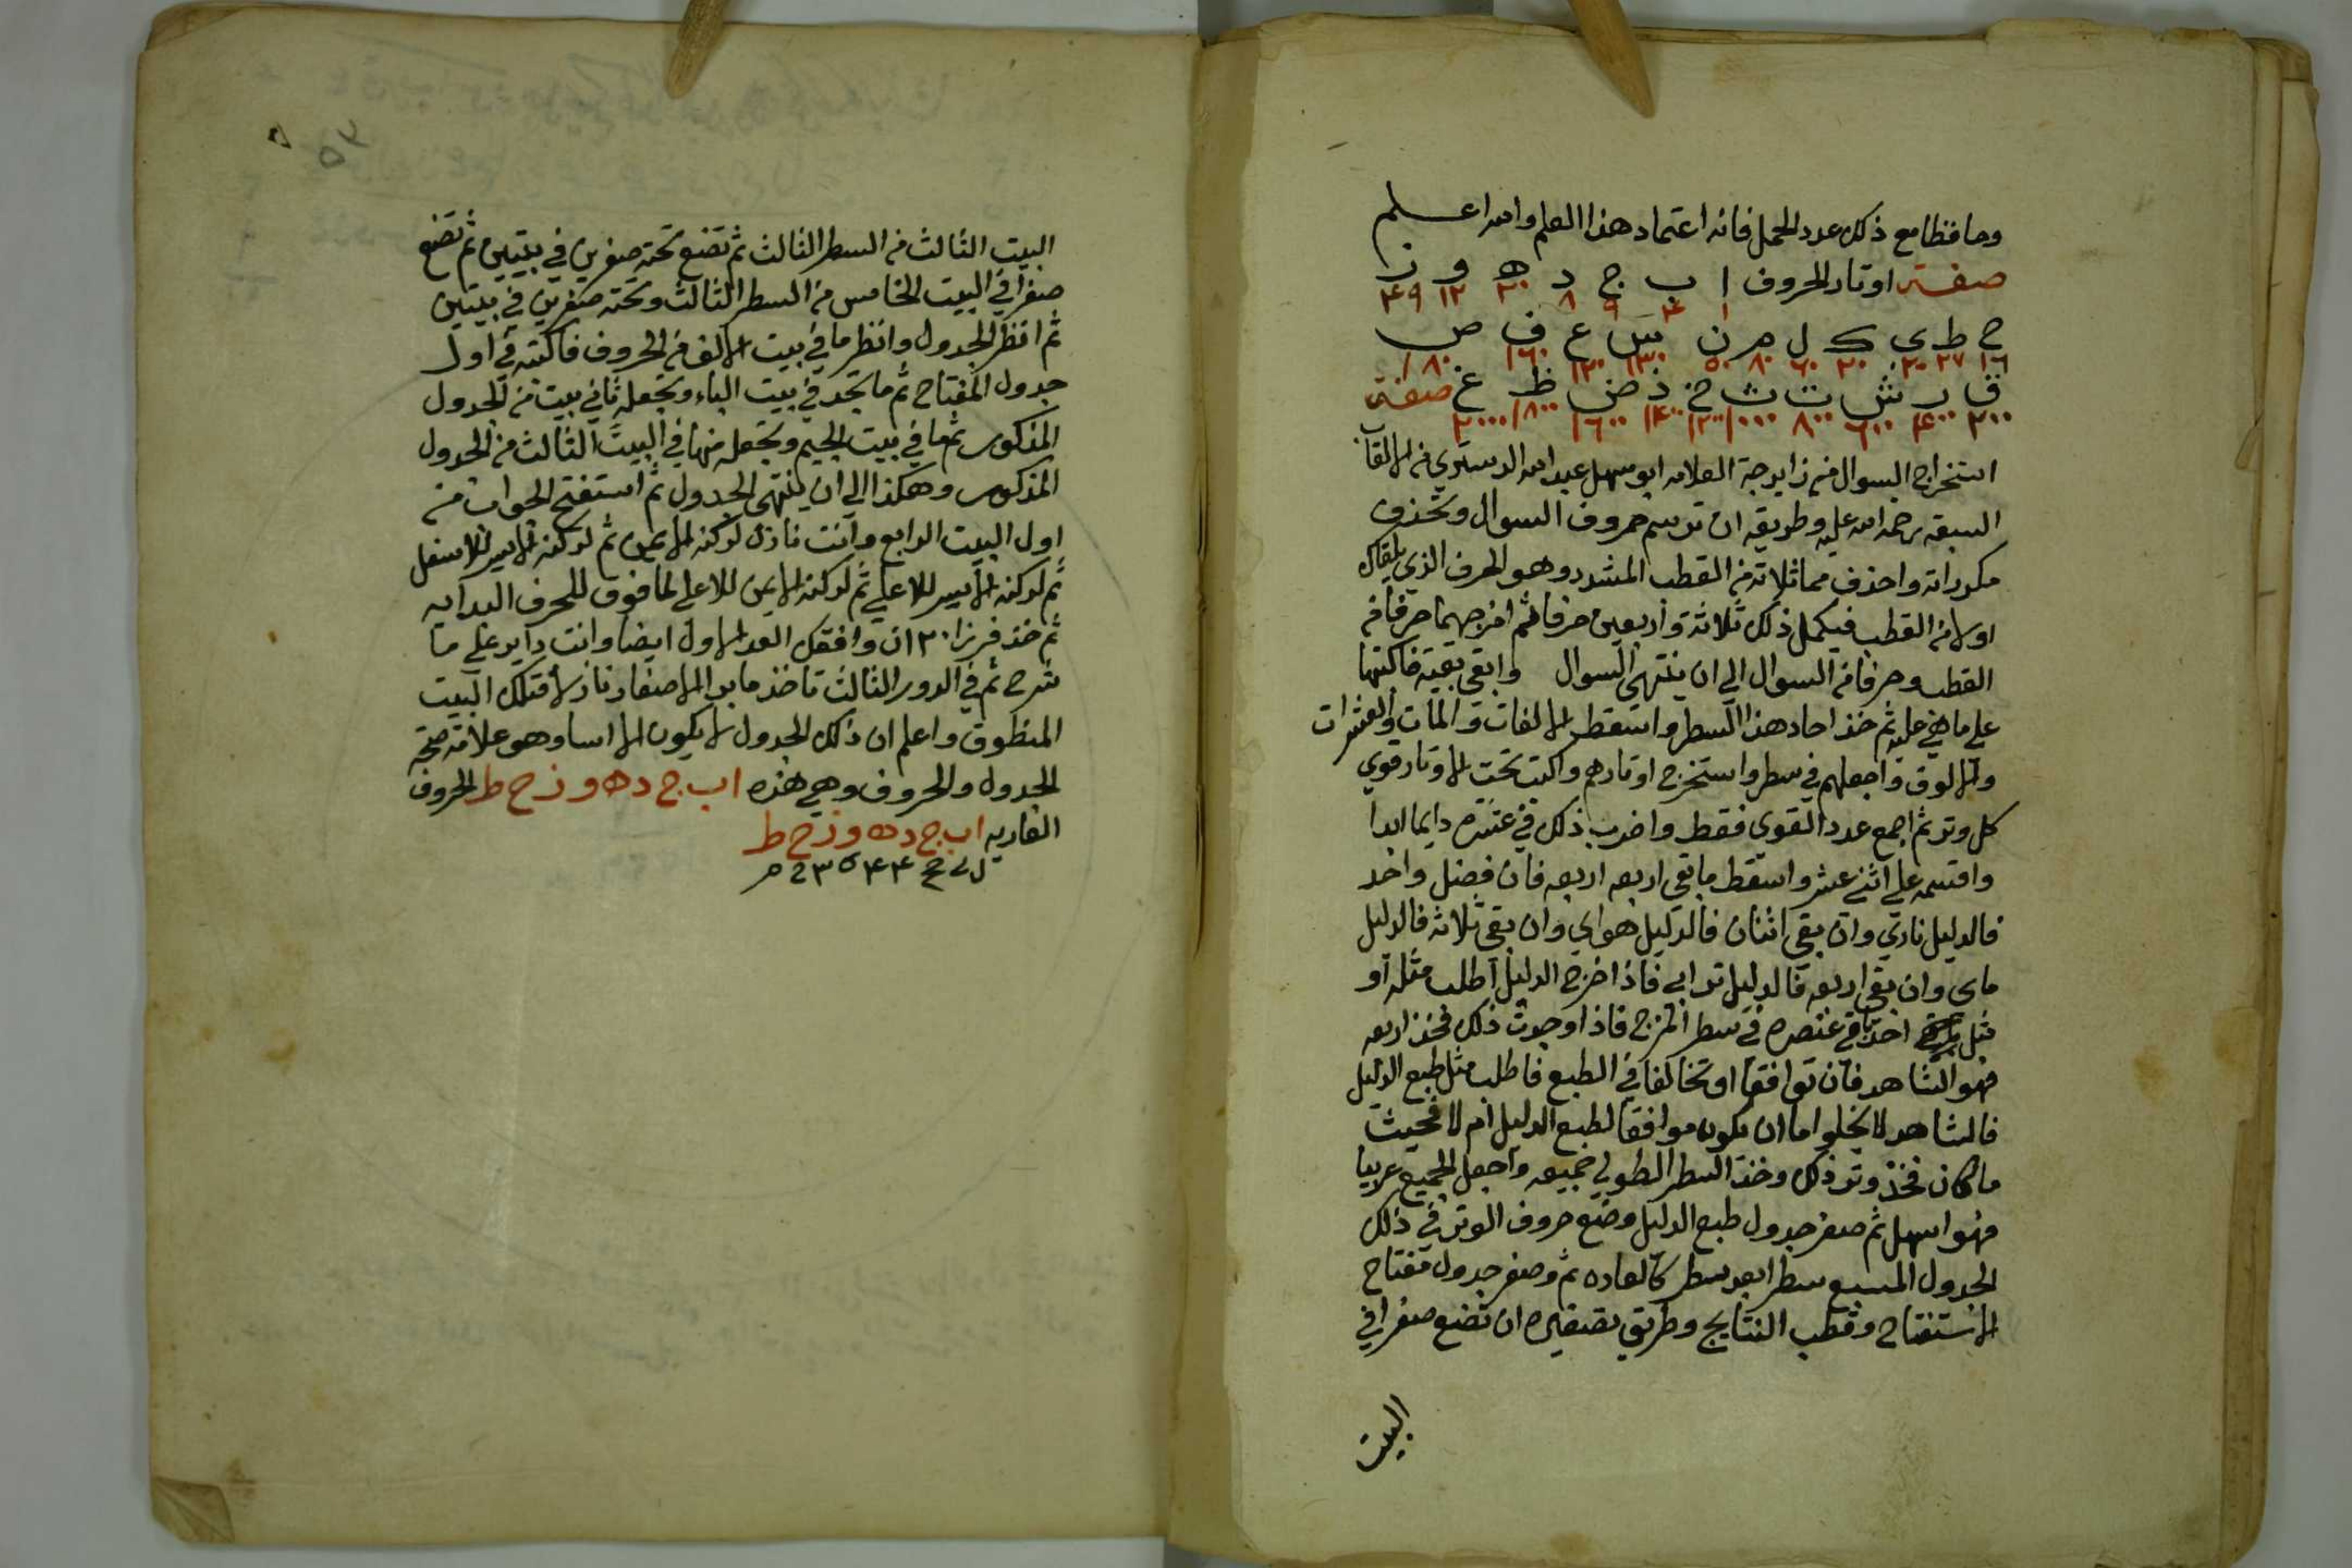 وحافظا مع ذلك عدد الجمل فانه اعتماد هذا العلم والله اعلم
صفة اوتار الحروف ا ب ج د ه و ز
١ ٤ ٩ ٨ ٢٠ ١٢ ٤٩
ح ط ى ك ل م ن س ع ف ص
١٦ ٢٧ ٢٠ ٣٠ ٦٠ ٨٠ ٥٠ ١٣٠ ١٢٠ ١٦٠ ١٨٠
ق ر ش ت ث خ ذ ض ظ غ صفة
٢٠٠ ٤٠٠ ٦٠٠ ٨٠٠ ١٠٠٠ ١٢٠٠ ١٤٠٠ ١٦٠٠ ١٨٠٠ ٢٠٠٠
استخراج السوال من زايرجة العلامه ابو سهل عبد الله الدستري من الالقاب
السبقه رحمه الله عليه وطريقه ان ترسم حروف السوال وتحذف
مكرراته واحذف مماثلاته من القطب المشدد وهو الحرف الذي يلقاك
اولا من القطب فيكمل ذلك ثلاثة واربعين حرفا ثم امزجهما حرفا من
القطب وحرفا من السوال الى ان ينتهى السوال وابقى بقيته فاكتبها
على ماهي عليه ثم خذ احاد هذا السطر واسقط الالفات والمات والعشرات
والالوف واجعلهم في سطر واستخرج اوتارهم واكتب تحت الاوتار قوي
كل وتر ثم اجمع عدد القوي فقط واضرب ذلك في عشره دايما ابدا
واقسمه على اثني عشر واسقط ما بقى اربعه اربعه فان فضل واحد
فالدليل ناري وان بقى اثنان فالدليل هواي وان بقى ثلاثه فالدليل
ماى وان بقى اربعه فالدليل ترابى فاذا خرج الدليل اطلب مثله او
مثل احد باقي عنصره في سطر المزج فاذا وجدت ذلك فخذ اربعه
فهو الشاهد فان توافقا او تخالفا في الطبع فاطلب مثل طبع الدليل
فالشاهد لا يخلوا اما ان يكون موافقا لطبع الدليل ام لا فحيث
ما كان فخذ وتر ذلك وخذ السطر الطولي جميعه واجعل الجميع عربيا
فهو اسهل ثم صفر جدول طبع الدليل وضع حروف الوتر في ذلك
الجدول المسبع سطرا بعد سطر كالعاده ثم وصفر جدول مفتاح
الاستفتاح وقطب النتايج وطريق تصفيره ان تضع صفرا في
البيت
٥٣
البيت الثالث من السطر الثالث ثم تضع تحته صفرين في بيتين ثم تضع
صفرا في البيت الخامس من السطر الثالث وتحته صفرين في بيتين
ثم انظر الجدول وانظر ما في بيت الالف من الحروف فاكتبه في اول
جدول المفتاح ثم ما تجد في بيت الباء وتجعله ثاني بيت من الجدول
المذكور ثم ما في بيت الجيم وتجعله منها في البيت الثالث من الجدول
المذكور وهكذا الي ان ينتهى الجدول ثم استفتح الجواب من
اول البيت الرابع وانت نازل لركنه الايمن ثم لركنه الايسر للاسفل
ثم لركنه الايسر للاعلي ثم لركنه الايمن للاعلى لما فوق للحرف البدايه
ثم خذ فرزا ٣٠ ان وافقك العد الاول ايضا وانت داير على ما
شرح ثم في الدور الثالث تاخذ ما بدا الاصفار نازلا قتلك البيت
المنطوق واعلم ان ذلك الجدول لا يكون الا اسا وهو علامة صحة
الجدول والحروف وهي هذه ا ب ج د ه و ز ح ط الحروف
الغاديه ا ب ج د ه و ز ح ط